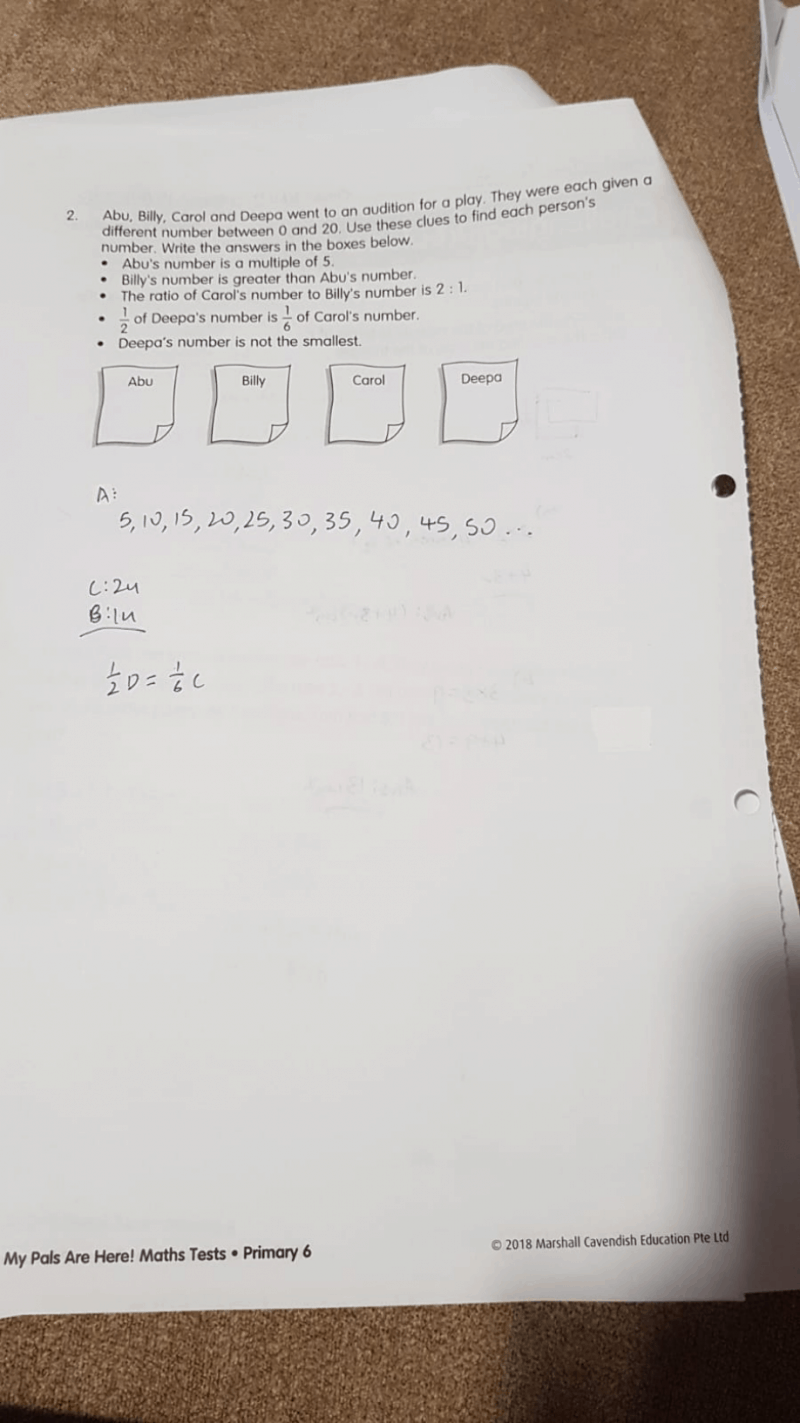 2. Abu, Billy, Carol and Deepa went to an audition for a play. They were each given a
different number between 0 and 20. Use these clues to find each person's
number. Write the answers in the boxes below.
• Abu's number is a multiple of 5.
• Billy's number is greater than Abu's number.
• The ratio of Carol's number to Billy's number is 2 : 1.
• 1/2 of Deepa's number is 1/6 of Carol's number.
• Deepa's number is not the smallest.
Abu Billy Carol Deepa
A:
5, 10, 15, 20, 25, 30, 35, 40, 45, 50 ...
C: 2u
B: 1u
1/2 D = 1/6 C
My Pals Are Here! Maths Tests • Primary 6
© 2018 Marshall Cavendish Education Pte Ltd